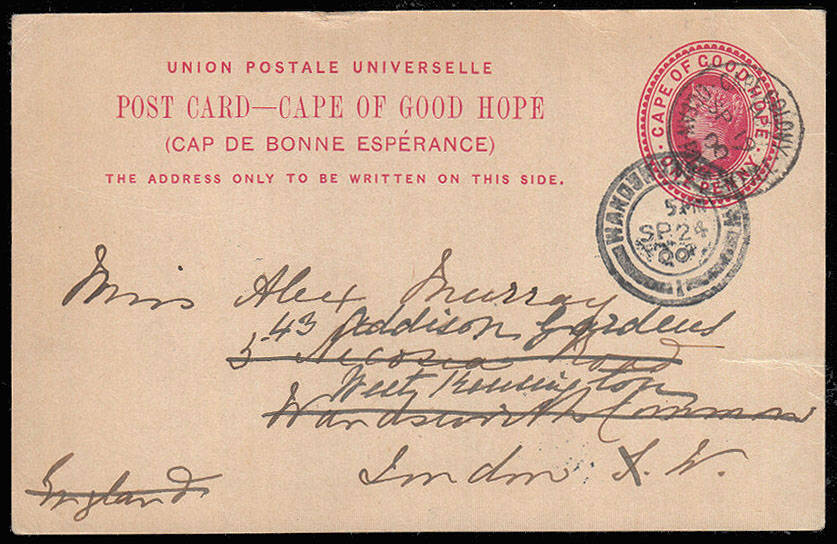 UNION POSTALE UNIVERSELLE
POST CARD—CAPE OF GOOD HOPE
(CAP DE BONNE ESPÉRANCE)
THE ADDRESS ONLY TO BE WRITTEN ON THIS SIDE.
CAPE OF GOOD HOPE
ONE PENNY
COLONY
5 PM
SP 24
00
Miss Alex Murray
43 Addison Gardens
5 Nicosia Road
West Kensington
Wandsworth Common
London S. W.
England